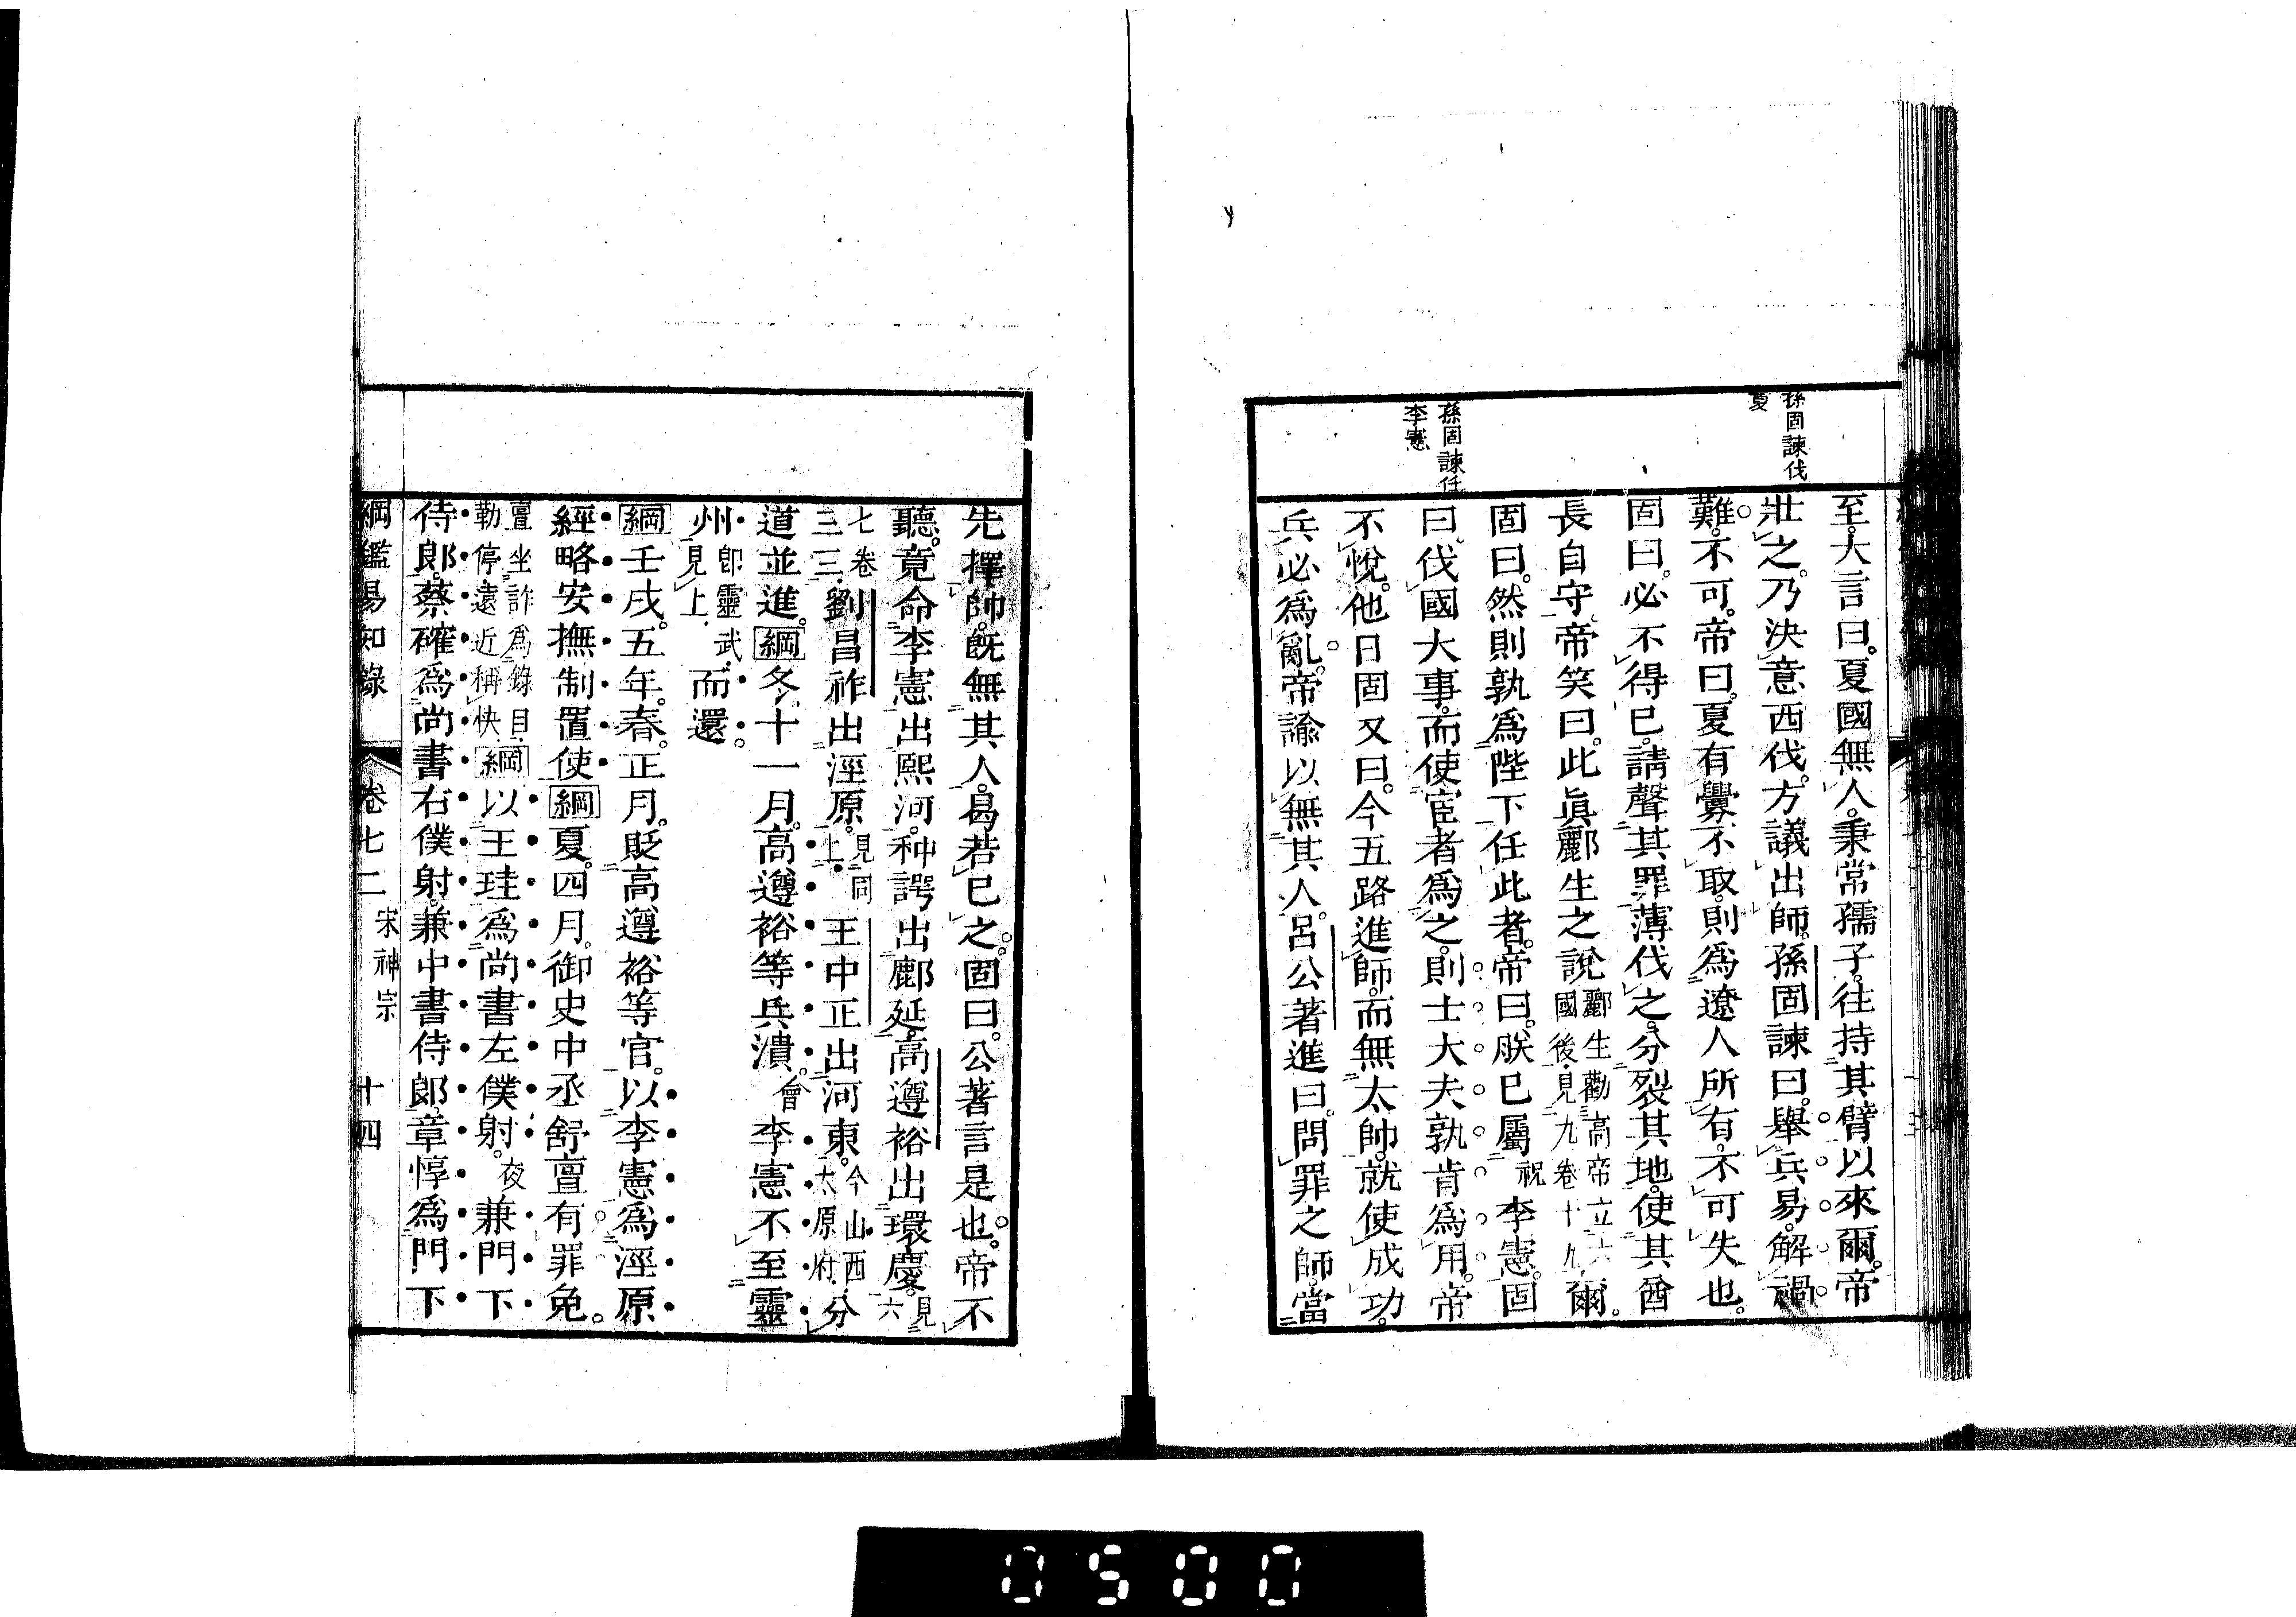 孫固諫伐
夏
孫固諫任
李憲
至。大言曰。夏國無人。秉常孺子。往持其臂以來爾。帝
壯之。乃決意西伐。方議出師。孫固諫曰。舉兵易。解禍
難。不可。帝曰。夏有釁不取。則爲遼人所有。不可失也。
固曰。必不得已。請聲其罪薄伐之。分裂其地。使其酋
長自守。帝笑曰。此眞酈生之說酈生勸高帝立六國後。見九卷十九爾。
固曰。然則孰爲陛下任此者。帝曰。朕已屬祝李憲。固
曰。伐國大事。而使宦者爲之。則士大夫孰肯爲用。帝
不悅。他日固又曰。今五路進師。而無太帥。就使成功。
兵必爲亂。帝諭以無其人。呂公著進曰。問罪之師。當
先擇帥。既無其人。曷若已之。固曰。公著言是也。帝不
聽。竟命李憲出熙河。种諤出鄜延。高遵裕出環慶。見六
七卷三三。劉昌祚出涇原。見同上。王中正出河東。今山西太原府。分
道並進。綱冬。十一月。高遵裕等兵潰會李憲不至靈
州卽靈武。見上。而還。
綱壬戌。五年。春。正月。貶高遵裕等官。以李憲爲涇原
經略安撫制置使。綱夏。四月。御史中丞舒亶有罪免。
亶坐詐爲錄目。勒停。遠近稱快。綱以王珪爲尚書左僕射。夜兼門下
侍郎。蔡確爲尚書右僕射。兼中書侍郎。章惇爲門下
綱鑑易知錄
卷七二 宋神宗 十四
0500